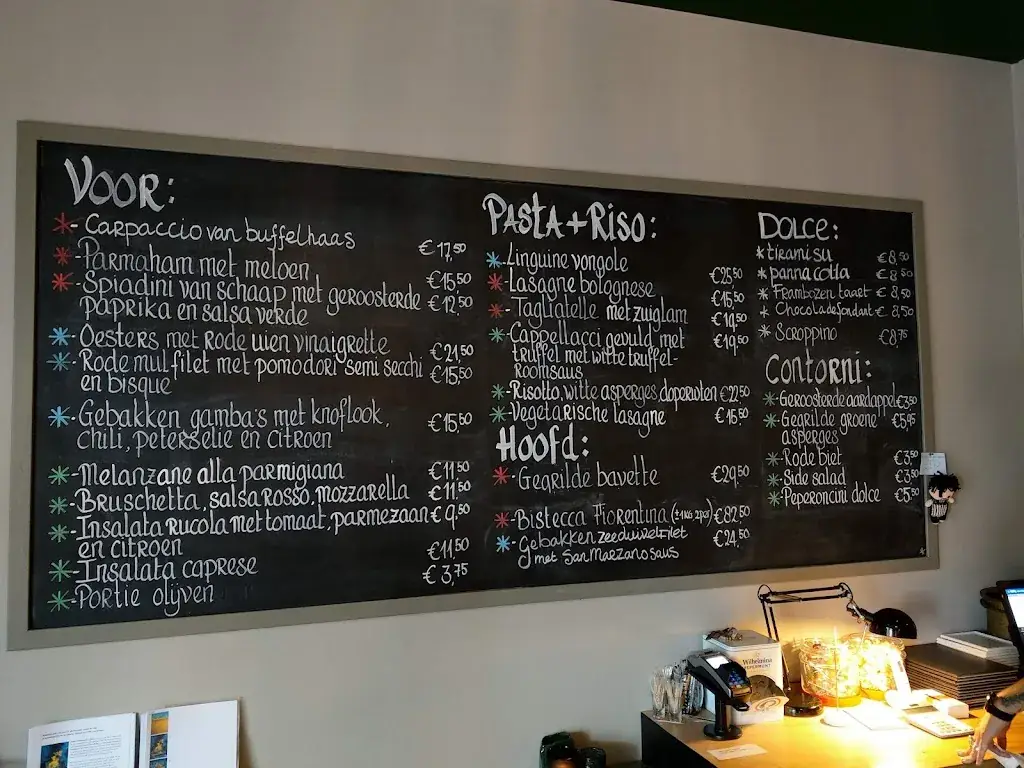 VOOR:
- Carpaccio van buffelhaas €17,50
- Parmaham met meloen €15,50
- Spiadini van schaap met geroosterde €12,50
paprika en salsa verde
- Oesters met Rode uien vinaigrette €21,50
- Rode mul filet met pomodori semi secchi €15,50
en bisque
- Gebakken gamba's met knoflook, €15,50
chili, peterselie en citroen
- Melanzane alla parmigiana €11,50
- Bruschetta, salsa rosso, mozzarella €11,50
- Insalata rucola met tomaat, parmezaan €9,50
en citroen
- Insalata caprese €11,50
- Portie olijven €3,75
PASTA + RISO:
- Linguine vongole €25,50
- Lasagne bolognese €15,50
- Tagliatelle met zuiglam €19,50
- Cappellacci gevuld met €19,50
truffel met witte truffel-
roomsaus
- Risotto, witte asperges, doperwten €22,50
- Vegetarische lasagne €15,50
Hoofd:
- Gegrilde bavette €29,50
- Bistecca Fiorentina (±1KG, 2pers) €82,50
- Gebakken zeeduivelfilet €24,50
met San Marzano saus
DOLCE:
tirami su €8,50
panna cotta €8,50
Frambozen taart €8,50
Chocoladefondant €8,50
Scroppino €8,75
Contorni:
- Geroosterde aardappel €3,50
- Gegrilde groene €5,95
asperges
- Rode biet €3,50
- Side salad €3,50
- Peperoncini dolce €5,50
Wilhelmina
PEPERMUNT